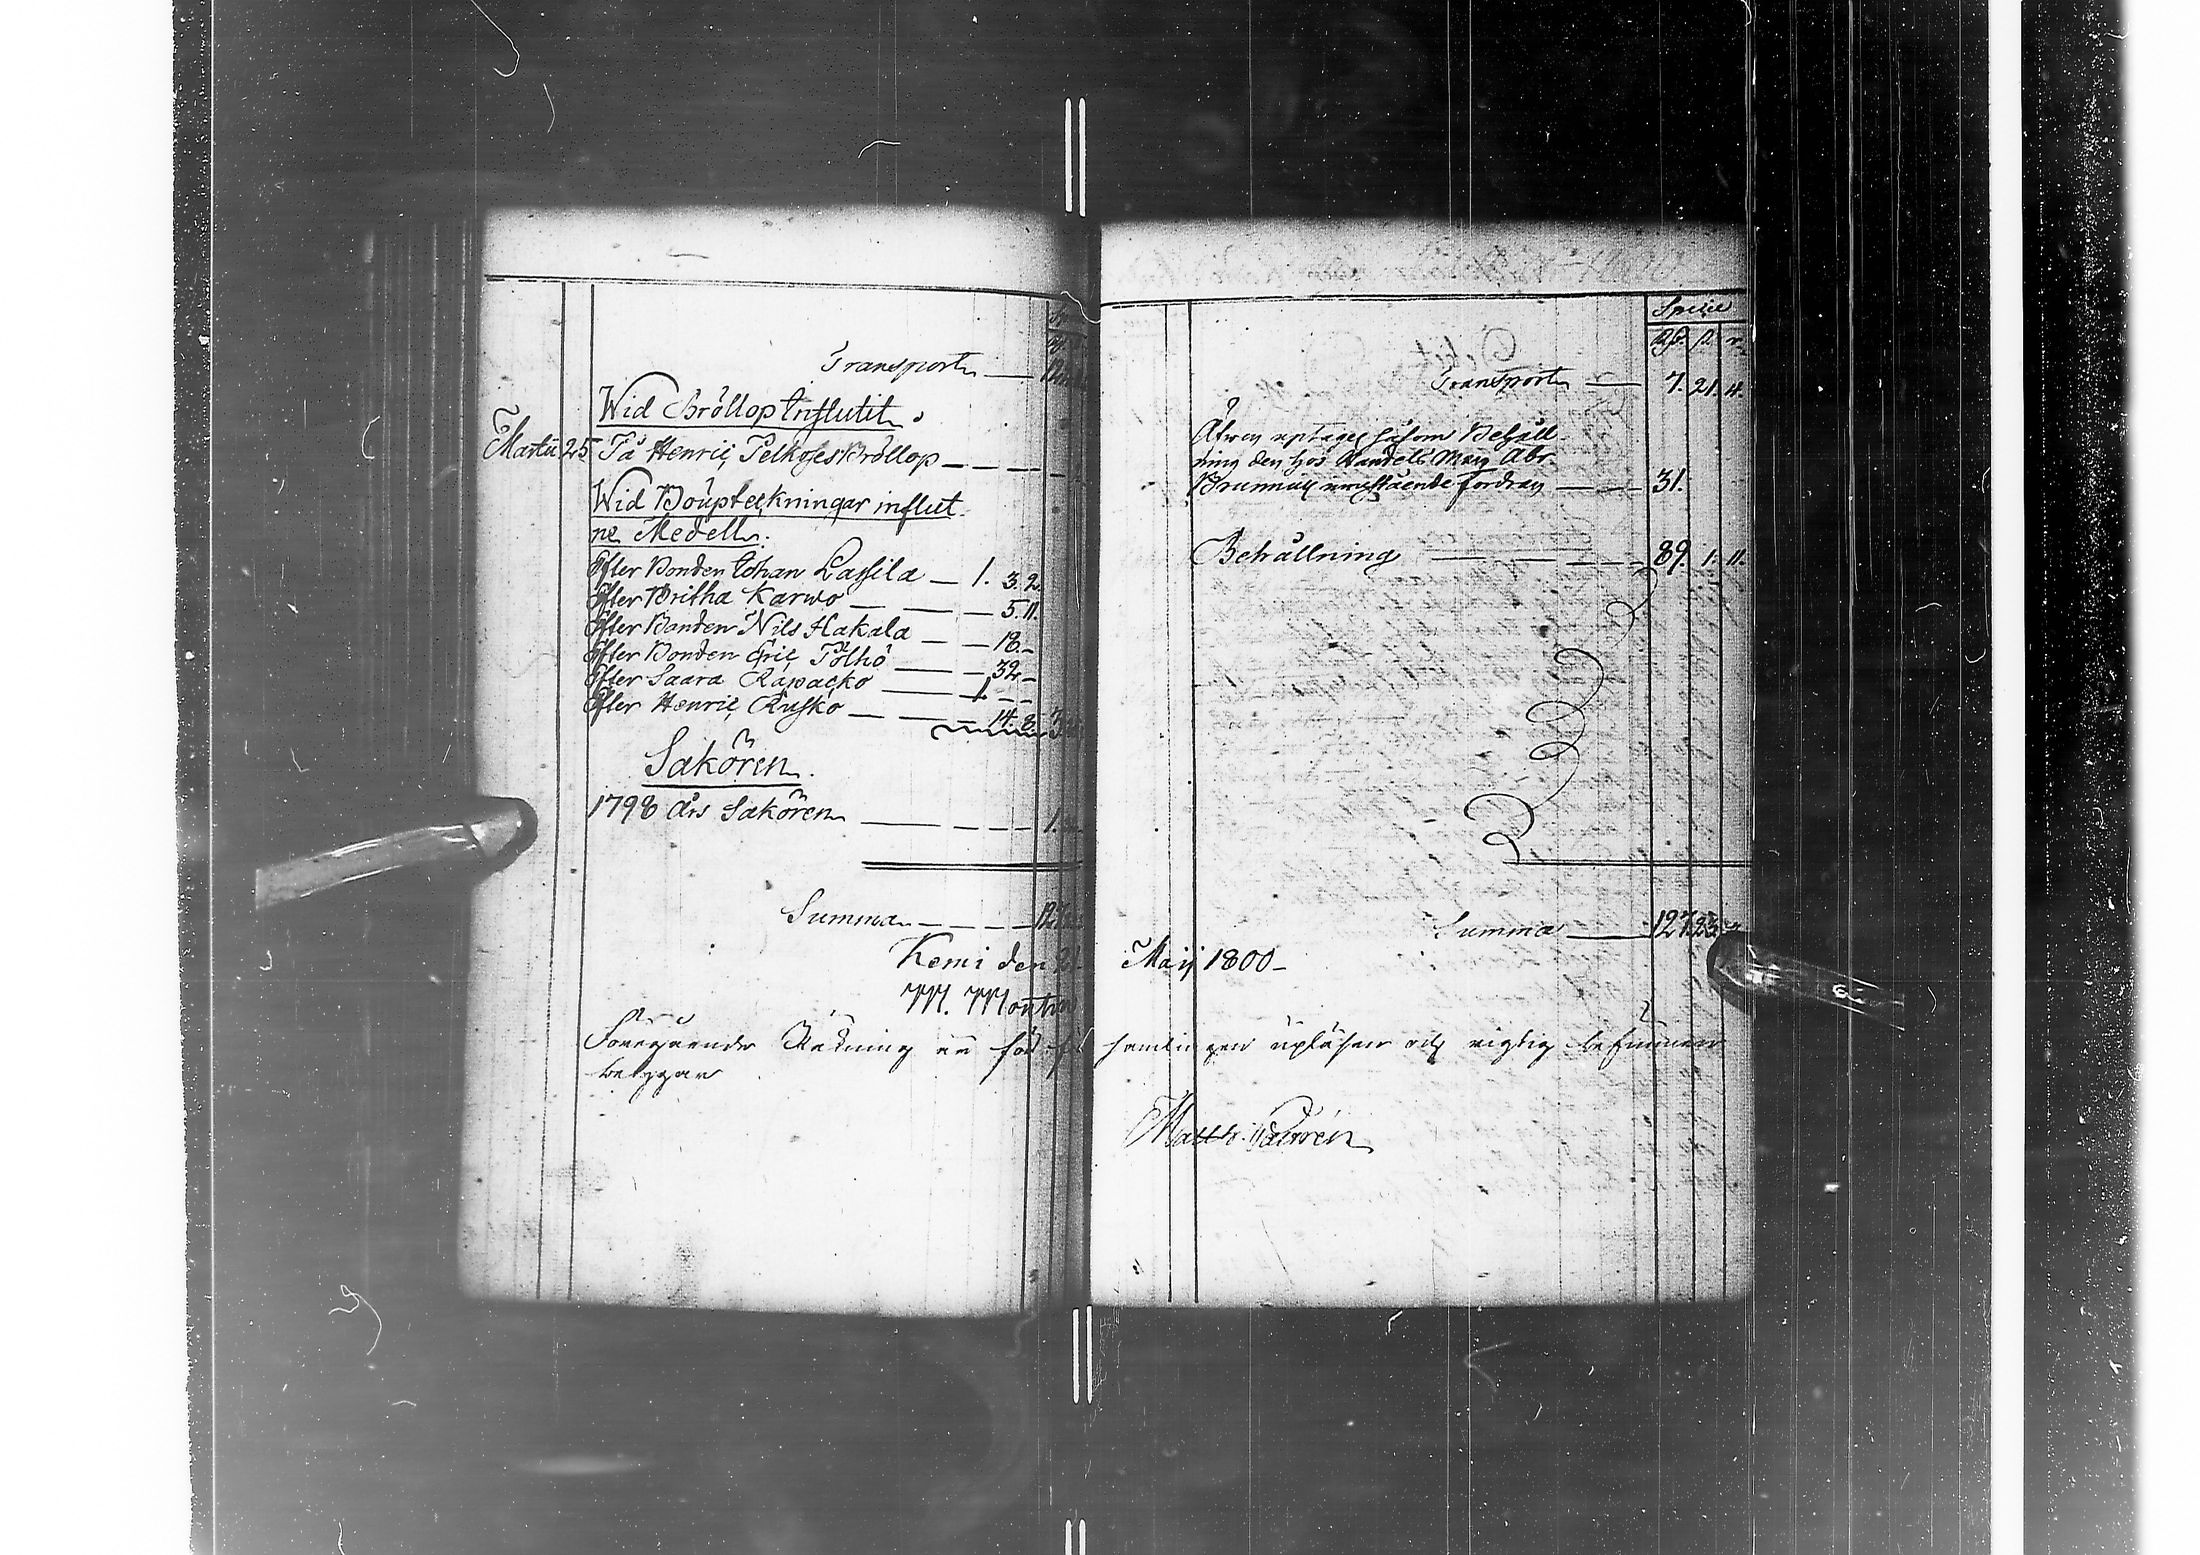 Transport
Wid Bröllop Influtit
Martii 25 På Henric Pelkoses Bröllop
Wid Boupteckningar influt-
ne Medell.
Efter Bonden Johan Lassila 1. 3. 2.
Efter Britha Karwo 5. 11.
Efter Bonden Nils Hakala 18.
Efter Bonden Eric Pölhö 32.
Efter Saara Rapacko 1.
Efter Henric Rusko 14. 8.
Sakören.
1798 Års Sakören 1.
Summa
Kemi den
M.
Föregående Räkning är för
Specie
Transport 7. 21. 4.
Äfwen uptages såsom Behåll-
ning den hos Handels Abr.
innestående fordran 31.
Behållning 89. 1. 11.
Summa 127. 23.
Maij 1800
upläsen och rigtig befunnen
Matth.